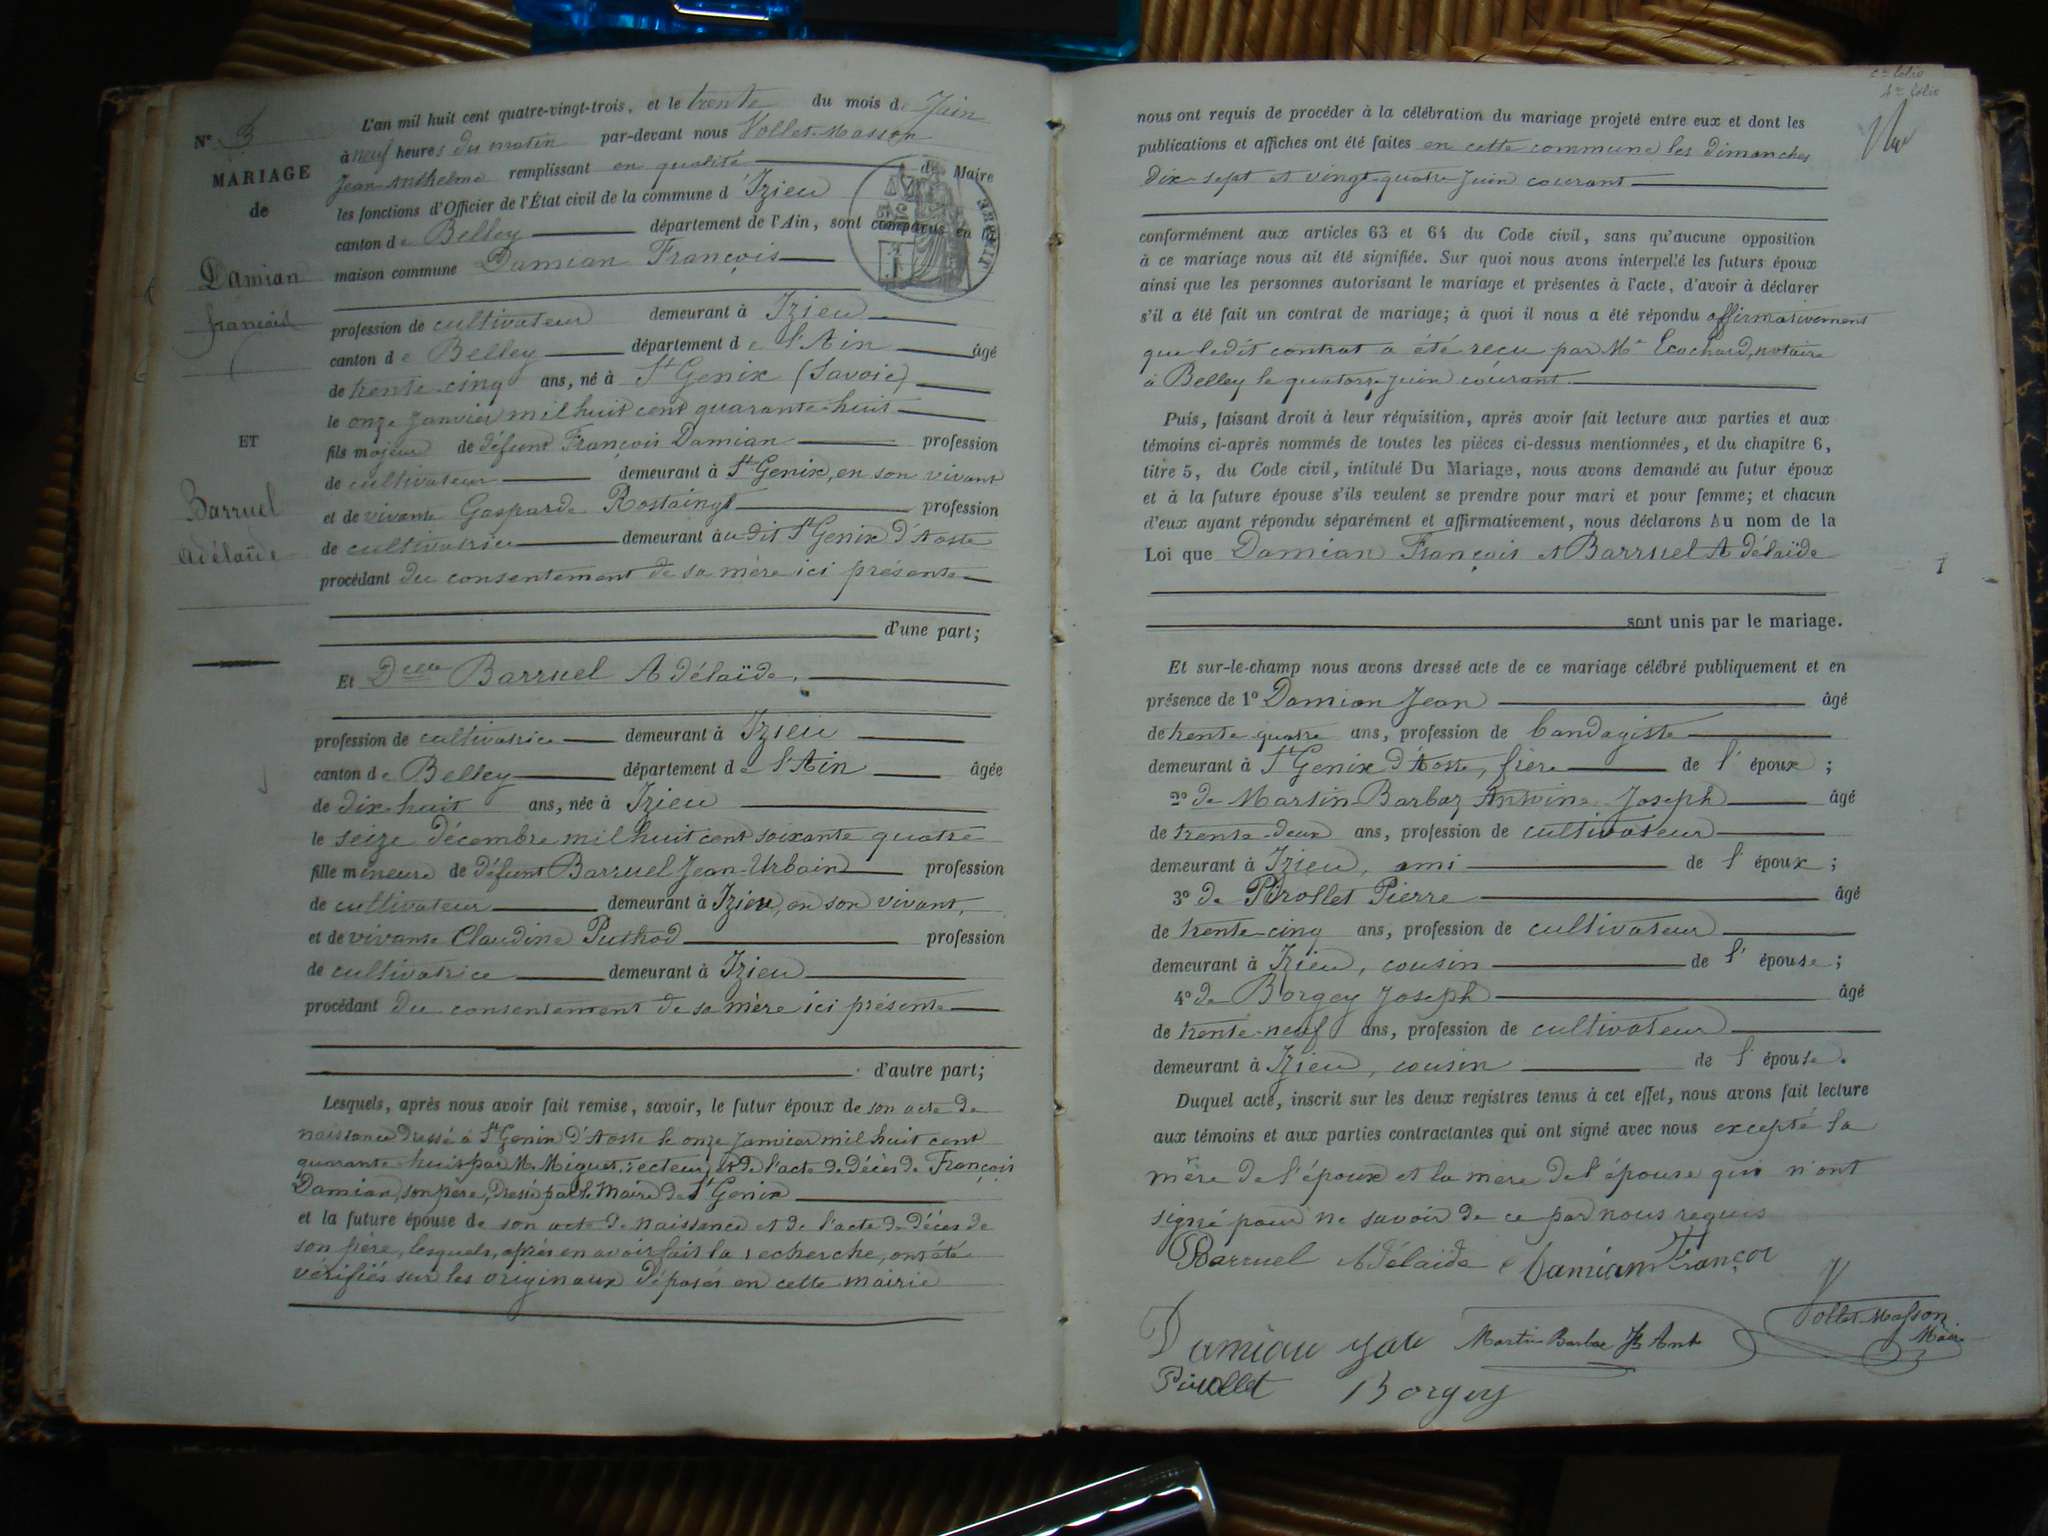 N° 3
MARIAGE
de
Damian
françois
ET
Barruel
Adélaïde
L'an mil huit cent quatre-vingt-trois, et le trente du mois de Juin
à neuf heures du matin par-devant nous Vollet-Masson
Jean Anthelme remplissant en qualité de Maire
les fonctions d'Officier de l'État civil de la commune d'Izieu
canton de Belley département de l'Ain, sont comparus en la
maison commune Damian François
profession de cultivateur demeurant à Izieu
canton de Belley département de l'Ain âgé
de trente-cinq ans, né à St Genix (Savoie)
le onze Janvier mil huit cent quarante-huit
fils majeur de défunt François Damian profession
de cultivateur demeurant à St Genix, en son vivant
et de vivante Gasparde Rostaingt profession
de cultivatrice demeurant audit St Genix d'Aoste
procédant du consentement de sa mère ici présente
d'une part;
Et Delle Barruel Adélaïde,
profession de cultivatrice demeurant à Izieu
canton de Belley département de l'Ain âgée
de dix-huit ans, née à Izieu
le seize décembre mil huit cent soixante quatre
fille mineure de défunt Barruel Jean-Urbain profession
de cultivateur demeurant à Izieu, en son vivant,
et de vivante Claudine Puthod profession
de cultivatrice demeurant à Izieu
procédant du consentement de sa mère ici présente
d'autre part;
Lesquels, après nous avoir fait remise, savoir, le futur époux de son acte de
naissance dressé à St Genix d'Aoste le onze Janvier mil huit cent
quarante-huit par M. Miguet, recteur, et de l'acte de décès de François
Damian, son père, dressé par le Maire de St Genix
et la future épouse de son acte de naissance et de l'acte de décès de
son père, lesquels, après en avoir fait la recherche, ont été
vérifiés sur les originaux déposés en cette mairie
nous ont requis de procéder à la célébration du mariage projeté entre eux et dont les
publications et affiches ont été faites en cette commune les dimanches
dix-sept et vingt-quatre Juin courant
conformément aux articles 63 et 64 du Code civil, sans qu'aucune opposition
à ce mariage nous ait été signifiée. Sur quoi nous avons interpellé les futurs époux
ainsi que les personnes autorisant le mariage et présentes à l'acte, d'avoir à déclarer
s'il a été fait un contrat de mariage; à quoi il nous a été répondu affirmativement
que ledit contrat a été reçu par Me Ecochard, notaire
à Belley le quatorze Juin courant
Puis, faisant droit à leur réquisition, après avoir fait lecture aux parties et aux
témoins ci-après nommés de toutes les pièces ci-dessus mentionnées, et du chapitre 6,
titre 5, du Code civil, intitulé Du Mariage, nous avons demandé au futur époux
et à la future épouse s'ils veulent se prendre pour mari et pour femme; et chacun
d'eux ayant répondu séparément et affirmativement, nous déclarons Au nom de la
Loi que Damian François et Barruel Adélaïde
sont unis par le mariage.
Et sur-le-champ nous avons dressé acte de ce mariage célébré publiquement et en
présence de 1° Damian Jean âgé
de trente quatre ans, profession de bandagiste
demeurant à St Genix d'Aoste, frère de l'époux;
2° de Martin-Barbaz Antoine-Joseph âgé
de trente-deux ans, profession de cultivateur
demeurant à Izieu, ami de l'époux;
3° de Pirollet Pierre âgé
de trente-cinq ans, profession de cultivateur
demeurant à Izieu, cousin de l'épouse;
4° de Borgey Joseph âgé
de trente-neuf ans, profession de cultivateur
demeurant à Izieu, cousin de l'épouse.
Duquel acte, inscrit sur les deux registres tenus à cet effet, nous avons fait lecture
aux témoins et aux parties contractantes qui ont signé avec nous excepté la
mère de l'époux et la mère de l'épouse qui n'ont
signé pour ne savoir de ce par nous requis
Barruel Adélaïde Damian Françoi
Vollet-Masson
Maire
Damian Martin Barbaz Jh Ant
Pirollet Borgey